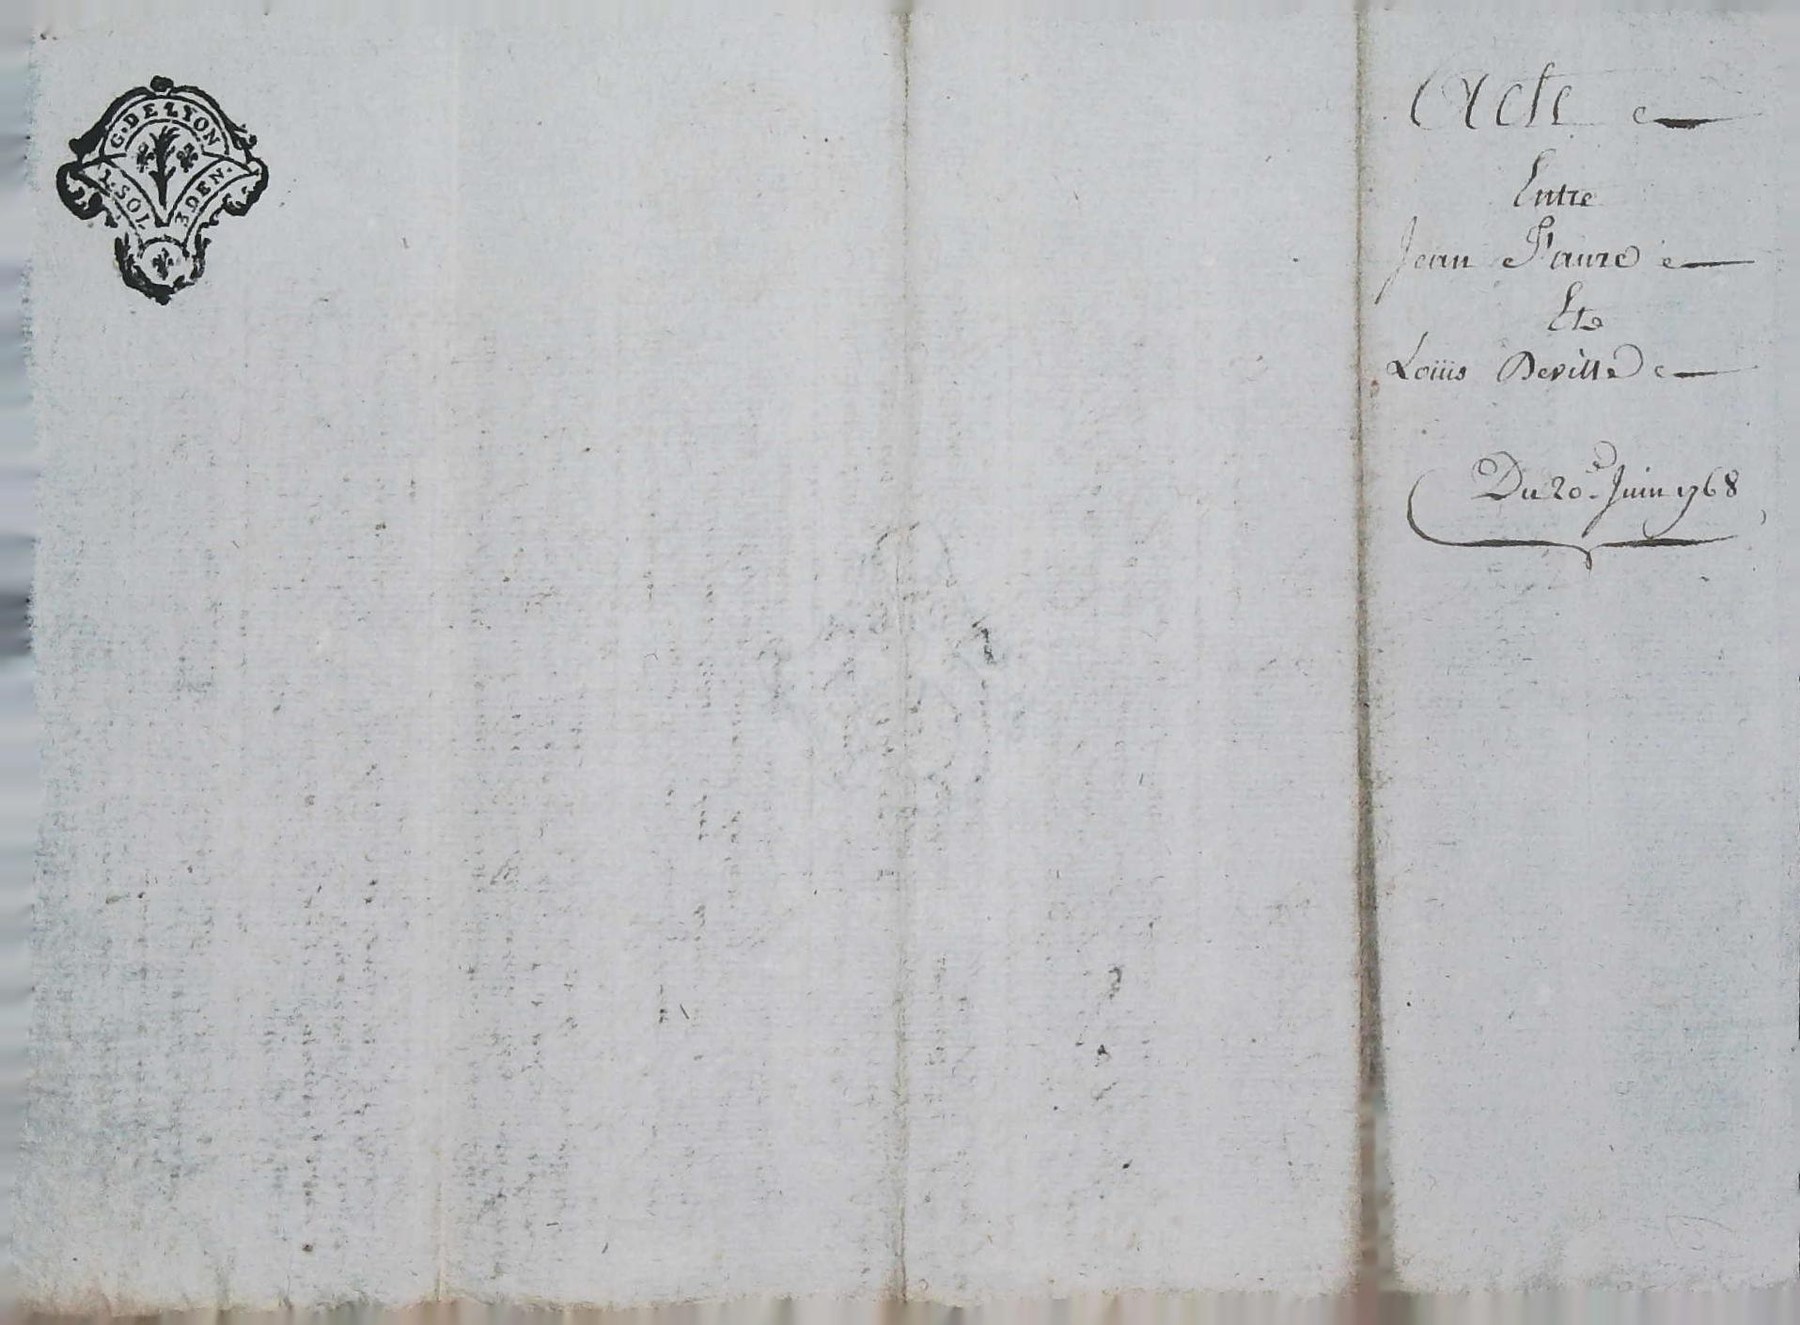 G. DE LYON
1. SOL 3 DEN.
Acte
Entre
Jean Faure
Et
Loüis Deville
Du 20e Juin 1768